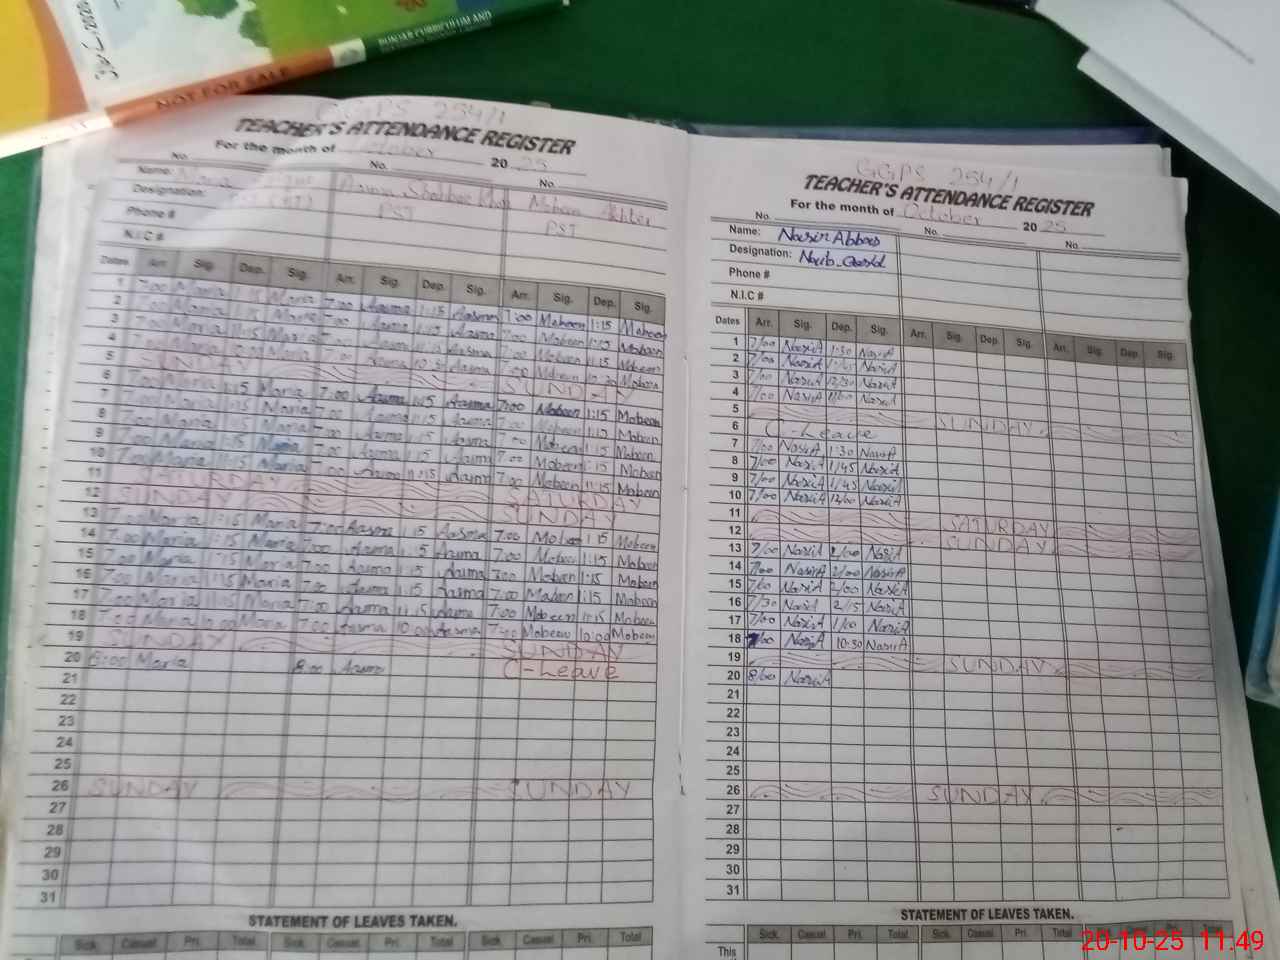 PUNJAB CURRICULUM AND
NOT FOR SALE
GGPS 254/1
TEACHER'S ATTENDANCE REGISTER
For the month of October 2025
No. No. No.
Name: Maria Mobeen Akhter
Designation: PST PST
Phone #
N.I.C #
Dates Arr. Sig. Dep. Sig. Arr. Sig. Dep. Sig. Arr. Sig. Dep. Sig.
1 7:00 Maria 1:15 Maria 7:00 Aasma 1:15 Aasma 7:00 Mobeen 1:15 Mobeen
2 7:00 Maria 1:15 Maria 7:00 Aasma 1:15 Aasma 7:00 Mobeen 1:15 Mobeen
3 7:00 Maria Maria 7:00 Aasma Aasma 7:00 Mobeen Mobeen
4 Maria Aasma Aasma 7:00 Mobeen Mobeen
5 SUNDAY SUNDAY
6 7:00 Maria 1:15 Maria 7:00 Aasma 1:15 Aasma 7:00 Mobeen 1:15 Mobeen
7 1:15 Maria 7:00 Aasma 1:15 Aasma 7:00 Mobeen 1:15 Mobeen
8 7:00 Maria 1:15 Maria 7:00 Aasma 1:15 Aasma 7:00 Mobeen 1:15 Mobeen
9 7:00 Maria 1:15 Maria 7:00 Aasma 1:15 Aasma 7:00 Mobeen 1:15 Mobeen
10 7:00 Maria Maria 7:00 Aasma Aasma 7:00 Mobeen Mobeen
11 SATURDAY SATURDAY
12 SUNDAY SUNDAY
13 7:00 Maria 1:15 Maria 7:00 Aasma 1:15 Aasma 7:00 Mobeen 1:15 Mobeen
14 7:00 Maria 1:15 Maria 7:00 Aasma 1:15 Aasma 7:00 Mobeen 1:15 Mobeen
15 7:00 Maria 1:15 Maria 7:00 Aasma 1:15 Aasma 7:00 Mobeen 1:15 Mobeen
16 7:00 Maria 1:15 Maria 7:00 Aasma 1:15 Aasma 7:00 Mobeen 1:15 Mobeen
17 7:00 Maria Maria 7:00 Aasma 11:15 Aasma 7:00 Mobeen 11:15 Mobeen
18 7:00 Maria 10:00 Maria 7:00 Aasma 10:00 Aasma 7:00 Mobeen 10:00 Mobeen
19 SUNDAY SUNDAY
20 8:00 Maria 8:00 Aasma C-Leave
21
22
23
24
25
26 SUNDAY SUNDAY
27
28
29
30
31
STATEMENT OF LEAVES TAKEN.
Sick. Casual Pri. Total Sick. Casual Pri. Total Sick. Casual Pri. Total
GGPS 254/1
TEACHER'S ATTENDANCE REGISTER
For the month of October 2025
No. No. No.
Name: Nasir Abbas
Designation: Naib-Qasid
Phone #
N.I.C #
Dates Arr. Sig. Dep. Sig. Arr. Sig. Dep. Sig. Arr. Sig. Dep. Sig.
1 7/00 NasirA 1:30 NasirA
2 7/00 NasirA NasirA
3 7/00 NasirA 12/30 NasirA
4 7/00 NasirA 11/00 NasirA
5 SUNDAY
6 C-Leave
7 7/00 NasirA 1:30 NasirA
8 7/00 NasirA 1/45 NasirA
9 7/00 NasirA 1/45 NasirA
10 7/00 NasirA 12/00 NasirA
11 SATURDAY
12 SUNDAY
13 7/00 NasirA 2/00 NasirA
14 7/00 NasirA 2/00 NasirA
15 7/00 NasirA 2/00 NasirA
16 7/30 NasirA 2/15 NasirA
17 7/00 NasirA NasirA
18 7/00 NasirA 10:30 NasirA
19 SUNDAY
20 8/00 NasirA
21
22
23
24
25
26 SUNDAY
27
28
29
30
31
STATEMENT OF LEAVES TAKEN.
Sick. Casual Pri. Total Sick. Casual Pri. Total Sick. Casual Pri. Total
This
20-10-25 11.49